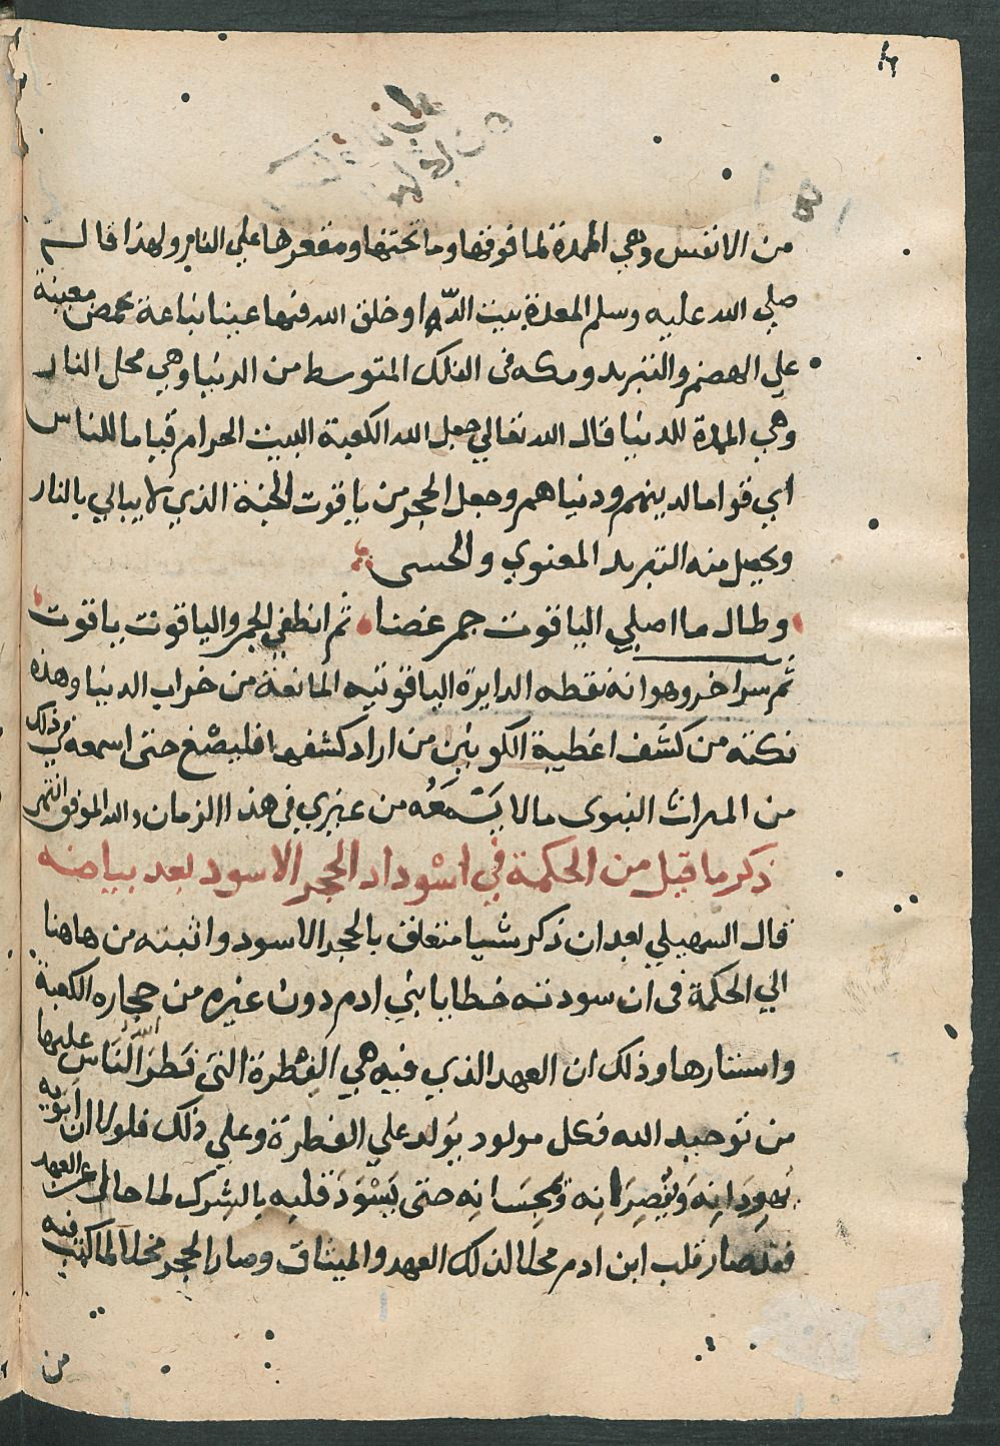 من الانفس وهي الممدة لما فوقها وما تحتها ومقعرها علي النار ولهذا قال
صلي الله عليه وسلم المعدة بيت الدآء او خلق الله فيها عينا نباعة بحمض معينة
علي الهضم والتبريد ومكه في الفلك المتوسط من الدنيا وهي محل النار
وهي الممدة للدنيا قال الله تعالي جعل الله الكعبة البيت الحرام قياما للناس
اي قواما لدينهم ودنياهم وجعل الحجر من ياقوت الجنة الذي لا يبالي بالنار
ويحصل منه التبريد المعنوي والحسى
وطال ما اصلي الياقوت جمر غضا ثم انطفي الجمر والياقوت ياقوت
ثم سرا خر وهو انه نقطه الدايرة الياقوتيه المانعة من خراب الدنيا وهذه
نكتة من كشف اغطية الكونين من اراد كشفها فليصْغ حتى اسمعه في ذلك
من الميراث النبوى ما لا يَسْمَعُه من غيري في هذا الزمان والله الموفق انتهى
ذكر ما قيل من الحكمة في اسْوداد الحجر الاسود بعد بياضه
قال السهيلي بعد ان ذكر شيا متعلق بالحجر الاسود واثبته من هاهنا
الي الحكمة في ان سودته خطايا بني ادم دون غيره من حجاره الكعبة
واستارها وذلك ان العهد الذي فيه هي الفِطرة التى فَطَرَ الله النَاس عليها
من توحيد الله فكل مولود يولد علي الفطرة وعلي ذلك فلولا ان ابويه
يهودانه وينصرانه ويمجسانه حتى يَسْوَدَ قلبه بالشرك لما حال عن العهد
فقد صار قلب ابن ادم محلا لذلك العهد والميثاق وصار الحجر محلا لما كتب فيه
من